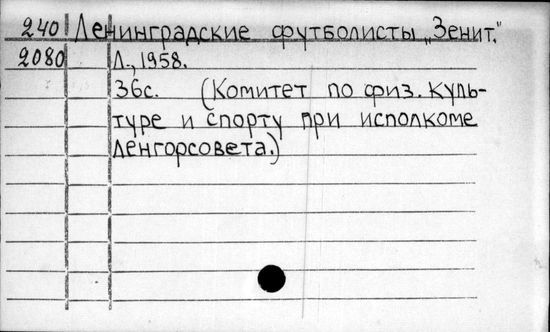 240 Ленинградские футболисты „Зенит."
2080 Л., 1958.
36с. (Комитет по физ. куль-
туре и спорту при исполкоме
Ленгорсовета.)